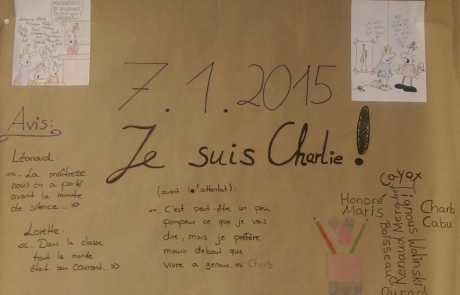 7.1.2015
Je suis Charlie !
Avis:
Léonard:
<<... La maîtresse
nous en a parlé
avant la minute
de silence...>>
Lorette:
<<... Dans la classe,
tout le monde
était au courant...>>
(avant l'attentat):
<<... C'est peut-être un peu
pompeux ce que je vais
dire, mais je préfère
mourir debout que
vivre à genoux...>> Charb
Honoré
Maris
Cayax
Tignous Wolinski
Renaud
Boisseau
Charb
Cabu